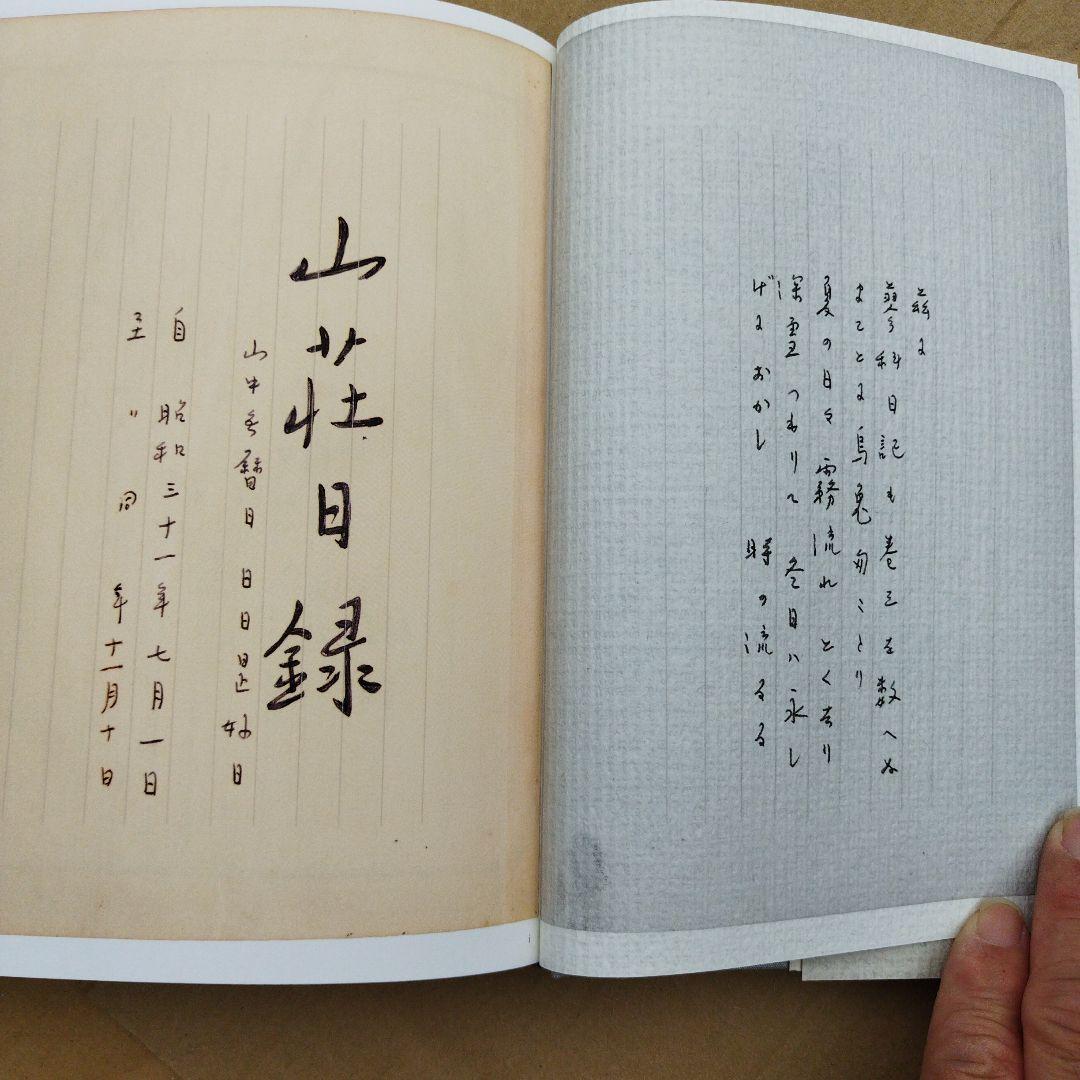 茲に
蓼科日記も巻三を数へぬ
まことに烏兎匆々たり
夏の日々霧流れ とく去り
深雪つもりて 冬日ハ永し
げにおかし 時の流るる
山荘日録
山中無暦日 日日是好日
自 昭和三十一年七月一日
至 〃 同 年十一月十日